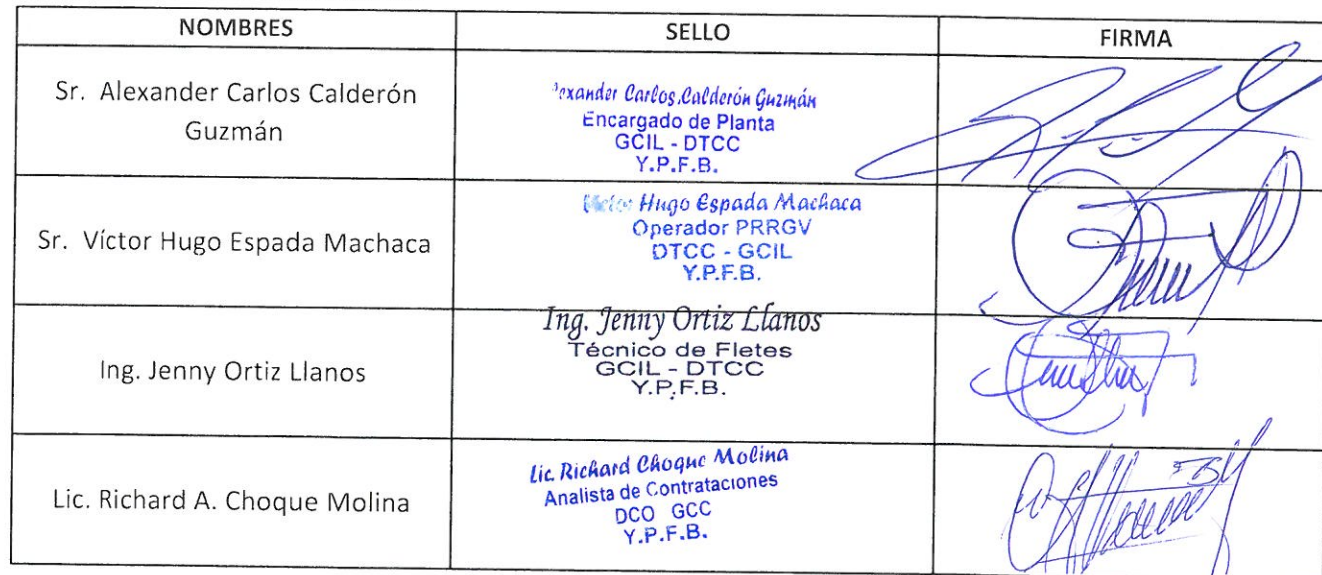 NOMBRES SELLO FIRMA
Sr. Alexander Carlos Calderón
Guzmán
Carlos Calderón Guzmán
Encargado de Planta
GCIL - DTCC
Y.P.F.B.
Sr. Víctor Hugo Espada Machaca
Hugo Espada Machaca
Operador PRRGV
DTCC - GCIL
Y.P.F.B.
Ing. Jenny Ortiz Llanos
Ing. Jenny Ortiz Llanos
Técnico de Fletes
GCIL - DTCC
Y.P.F.B.
Lic. Richard A. Choque Molina
Lic. Richard Choque Molina
Analista de Contrataciones
DCO GCC
Y.P.F.B.